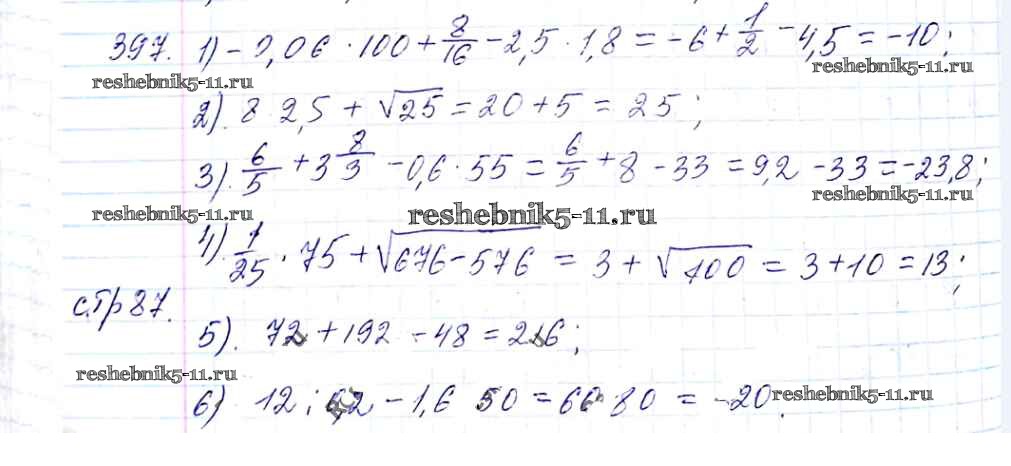 397. 1) -0,06 · 100 + 8/16 - 2,5 · 1,8 = -6 + 1/2 - 4,5 = -10;
reshebnik5-11.ru reshebnik5-11.ru
2). 8 2,5 + √25 = 20 + 5 = 25;
3). 6/5 + 3 8/3 - 0,6 · 55 = 6/5 + 8 - 33 = 9,2 - 33 = -23,8;
reshebnik5-11.ru reshebnik5-11.ru reshebnik5-11.ru
4) 1/25 · 75 + √676-576 = 3 + √100 = 3 + 10 = 13;
стр 87.
5). 72 + 192 - 48 = 216;
reshebnik5-11.ru
6) 12 : - 1,6 50 = 80 = -20. reshebnik5-11.ru